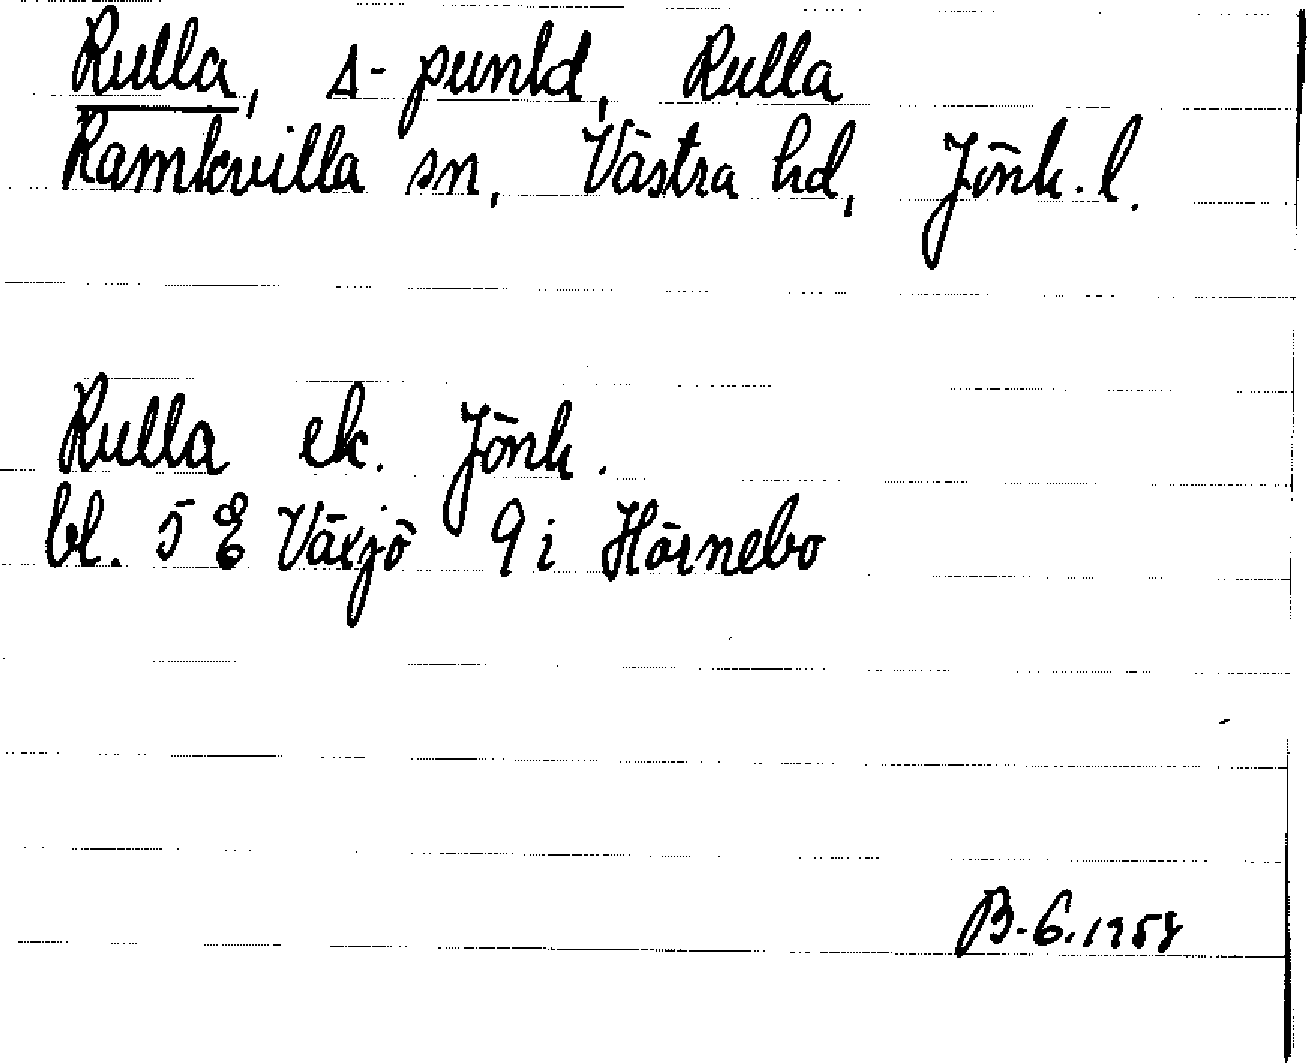 Rulla, ∆-punkt, Rulla
Ramkvilla sn, Västra hd, Jönk. l.
Rulla ek. Jönk.
bl. 5 E Växjö 9 i Hörnebo
B-6.1957